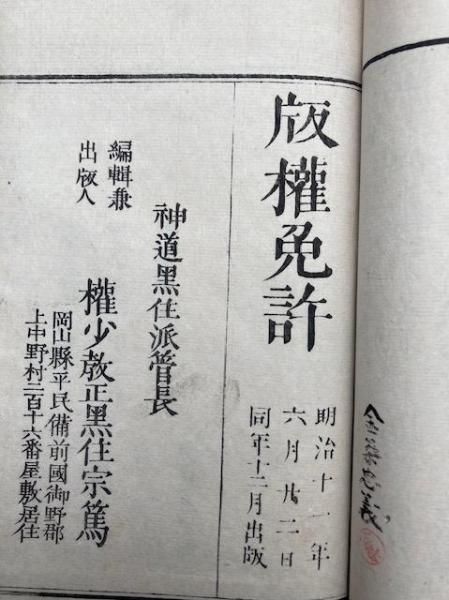 版權免許
明治十一年
六月廿二日
同年十二月出版
神道黑住派管長
編輯兼
出版人
權少教正黑住宗篤
岡山縣平民備前國御野郡
上中野村二百十六番屋敷居住